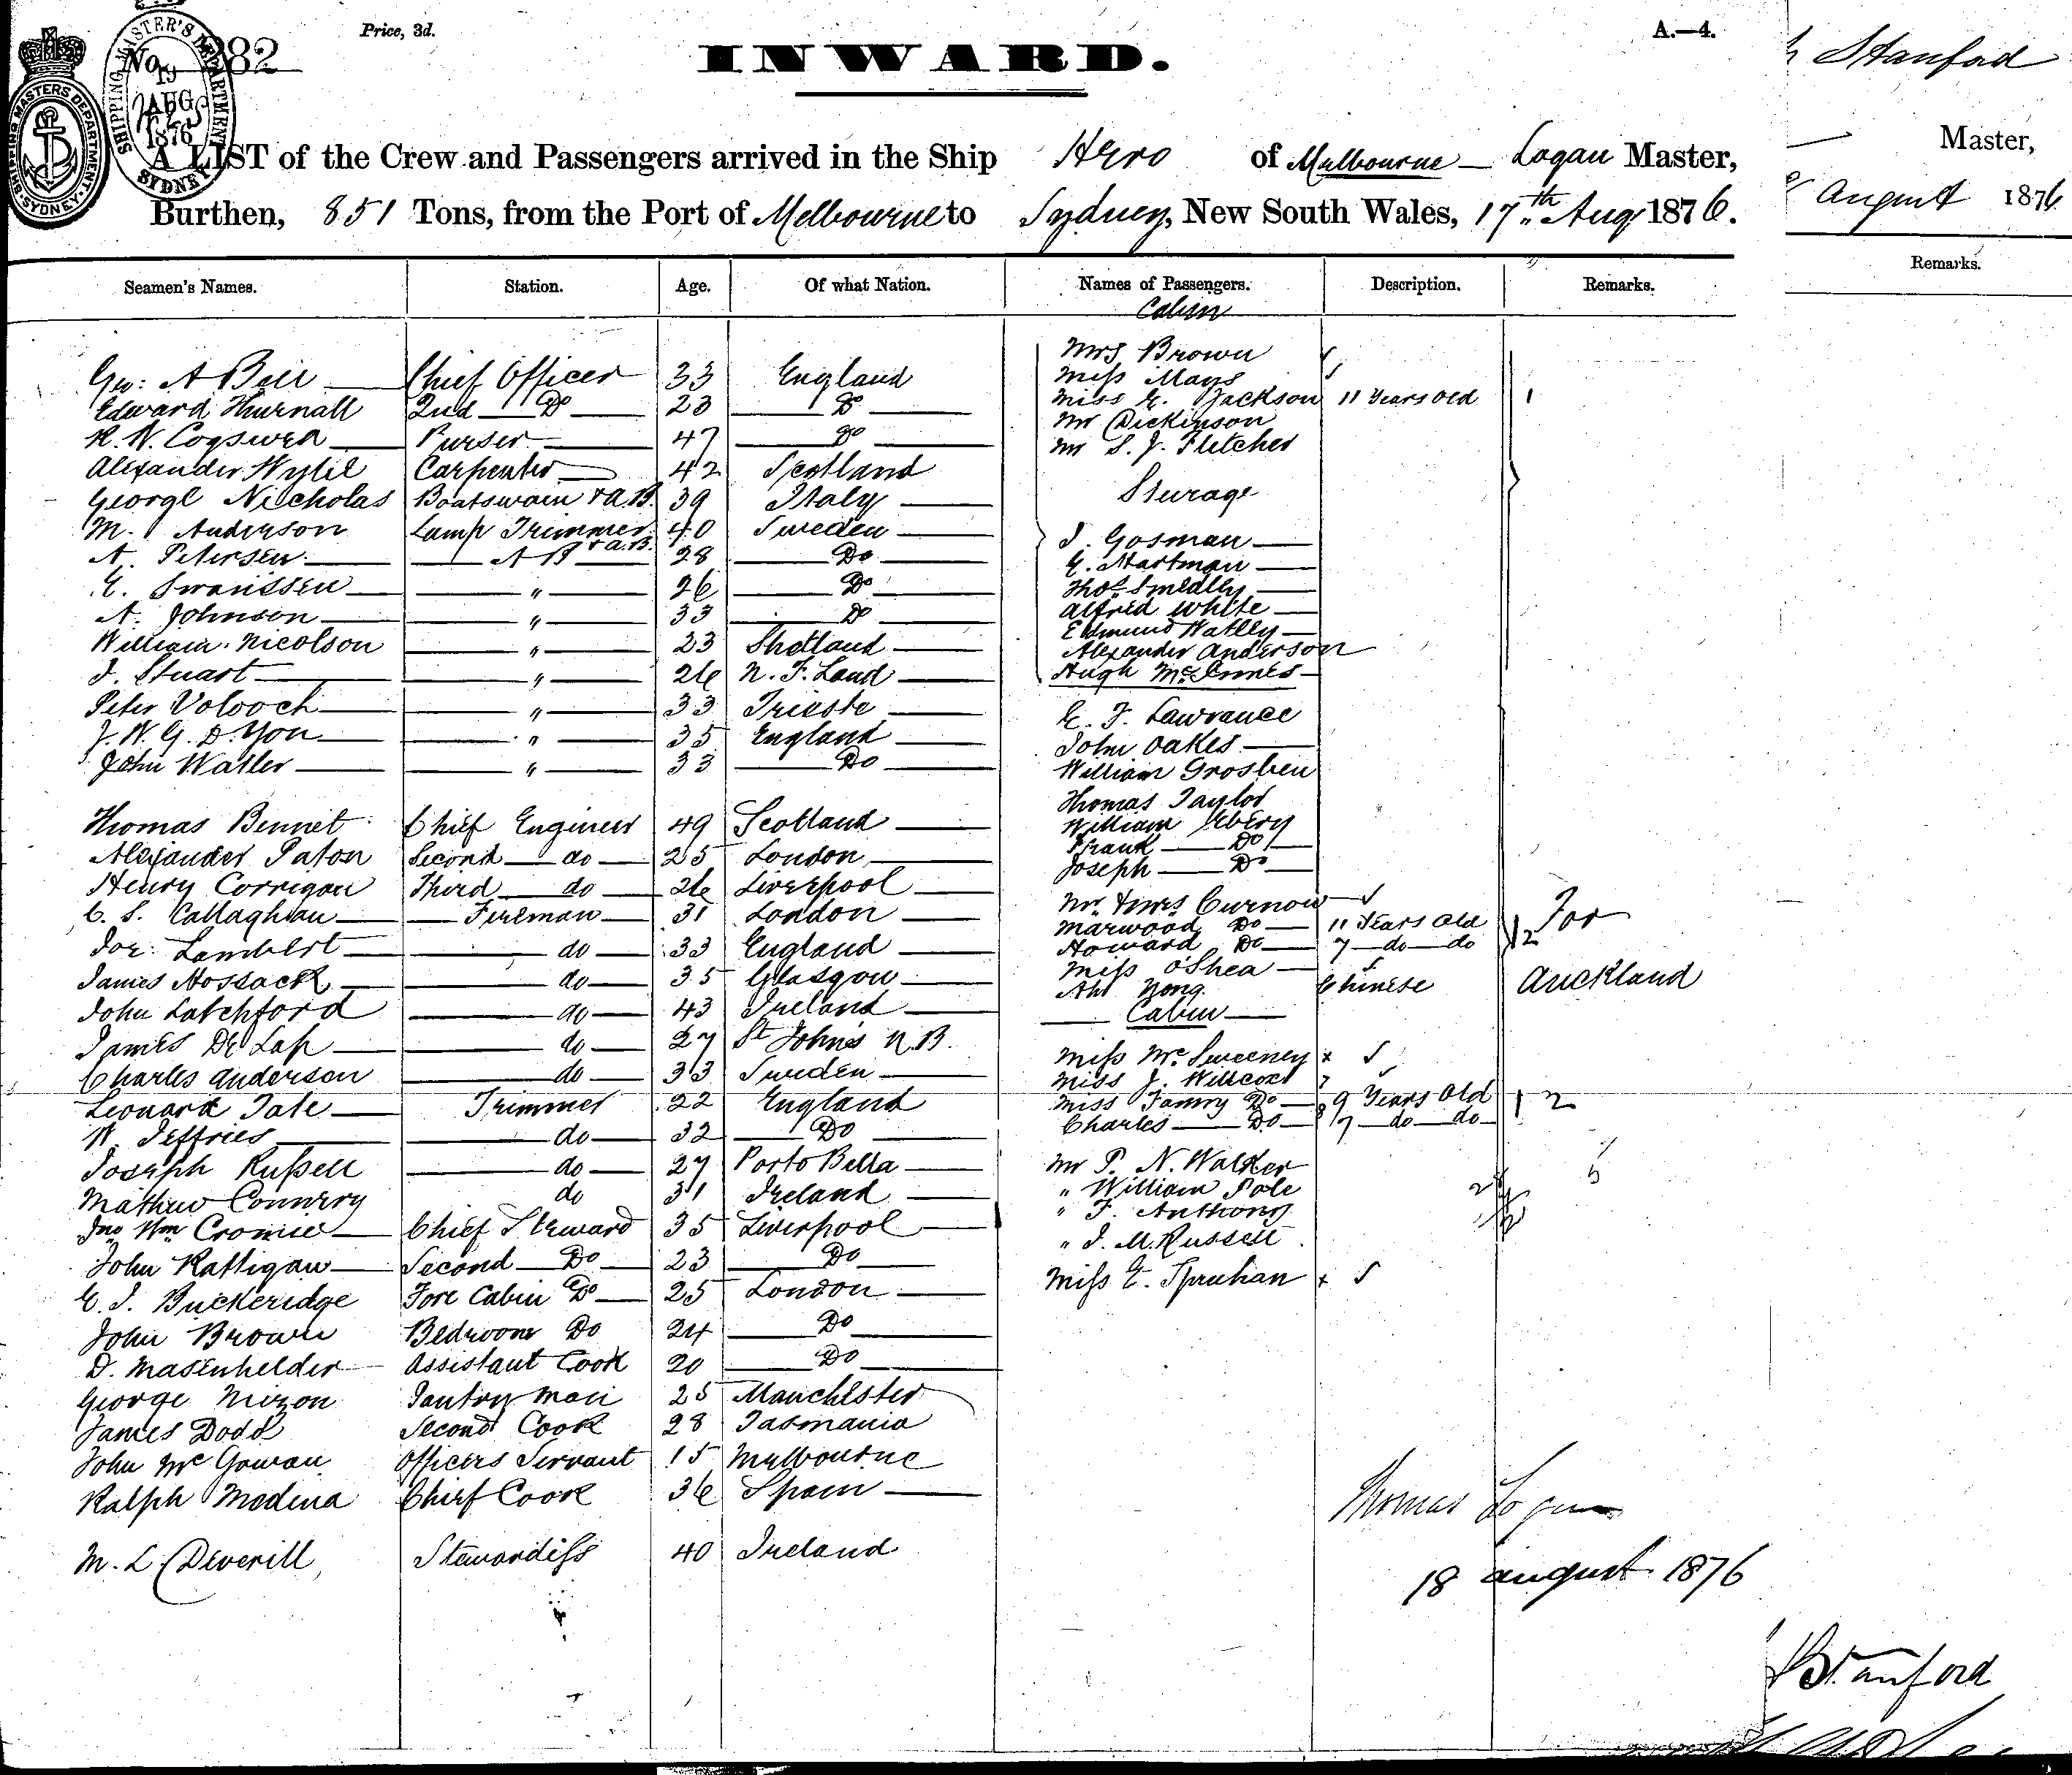 Price, 3d.
A.—4.
No. 282
SHIPPING MASTER'S DEPARTMENT SYDNEY
19 AUG 1876
SHIPPING MASTERS DEPARTMENT. SYDNEY.
INWARD.
A LIST of the Crew and Passengers arrived in the Ship Hero of Melbourne — Logan Master,
Burthen, 851 Tons, from the Port of Melbourne to Sydney, New South Wales, 17th Aug 1876.
Seamen's Names. Station. Age. Of what Nation. Names of Passengers. Description. Remarks.
Geo: A Beir Chief Officer 33 England
Edward Thurnall 2nd Do 23 Do
R. W. Cogswell Purser 47 Do
Alexander Wylie Carpenter 42 Scotland
George Nicholas Boatswain & A.B. 39 Italy
M. Anderson Lamp Trimmer & A.B. 40 Sweden
A. Petersen A B 28 Do
E. Swanssen " 26 Do
A. Johnson " 33 Do
William Nicolson " 23 Shetland
J. Stuart " 26 N. F. Land
Peter Volovch " 33 Trieste
J. W. G. D. Yon " 35 England
John Waller " 33 Do
Thomas Bennet Chief Engineer 49 Scotland
Alexander Paton Second do 25 London
Henry Corrigan Third do 26 Liverpool
C. S. Callaghan Fireman 31 London
Jos: Lambert do 33 England
James Hossack do 35 Glasgow
John Latchford do 43 Ireland
James De Lap do 27 St John's N.B.
Charles Anderson do 33 Sweden
Leonard Tate Trimmer 22 England
W. Jeffries do 32 Do
Joseph Russell do 27 Porto Bella
Mathew Connery do 31 Ireland
Jno Wm Cromie Chief Steward 35 Liverpool
John Rattigan Second Do 23 Do
C. J. Buckeridge Fore Cabin Do 25 London
John Brown Bedroom Do 24 Do
D. Masenhelder Assistant Cook 20 Do
George Nixon Pantry man 25 Manchester
James Dodd Second Cook 28 Tasmania
John McGowan Officers Servant 15 Melbourne
Ralph Medina Chief Cook 36 Spain
M. L. Deverill Stewardess 40 Ireland
Cabin
Mrs Brown
Miss Mays
Miss E. Jackson 11 Years Old 1
Mr Dickinson
Mr S. J. Fletcher
Steerage
J. Gosman
E. Hartman
Thos Smedley
Alfred White
Edmund Watley
Alexander Anderson
Hugh McInnes
E. F. Lawrance
John Oakes
William Groshen
Thomas Taylor
William Ebery
Frank Do
Joseph Do
Mr. & Mrs Curnow
Marwood Do 11 Years Old
Howard Do 7 do do 2
For Auckland
Miss O'Shea
Ah Yong Chinese
Cabin
Miss McSweeney
Miss J. Willcox
Miss Fanny Do 9 Years Old
Charles Do 7 do do 2
Mr P. N. Walker
" William Pole
" F. Anthony
" J. M. Russell
Miss E. Spruhan
5
Thomas Logan
18 August 1876
Stanford
Master,
August 1876
Remarks.
Stanford